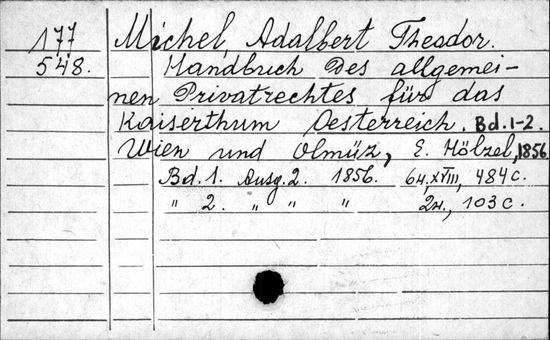 177
548.
Michel, Adalbert Theodor.
Handbuch des allgemei-
nen Privatrechtes für das
Kaiserthum Oesterreich. Bd. 1-2.
Wien und Olmüz, E. Hölzel, 1856
Bd. 1. Ausg. 2. 1856. 6н, XVIII, 484 c.
" 2. " " " 2н., 103 c.